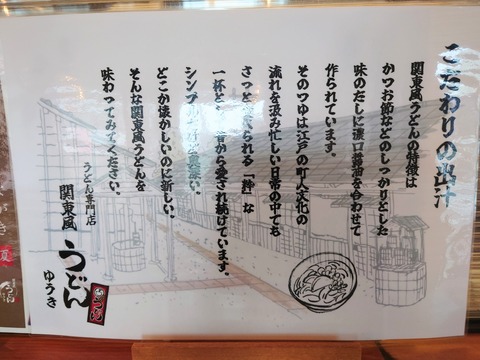 こだわりの出汁
関東風うどんの特徴は
かつお節などのしっかりとした
味のだしに濃口醤油を合わせて
作られています。
そのつゆは江戸の町人文化の
流れを汲み忙しい日常の中でも
さっと食べられる「粋」な
一杯として昔から愛され続けています。
シンプルで奥深い
どこか懐かしいのに新しい、
そんな関東風うどんを
味わってみてください。
うどん専門店
関東風
うどん
ゆうき